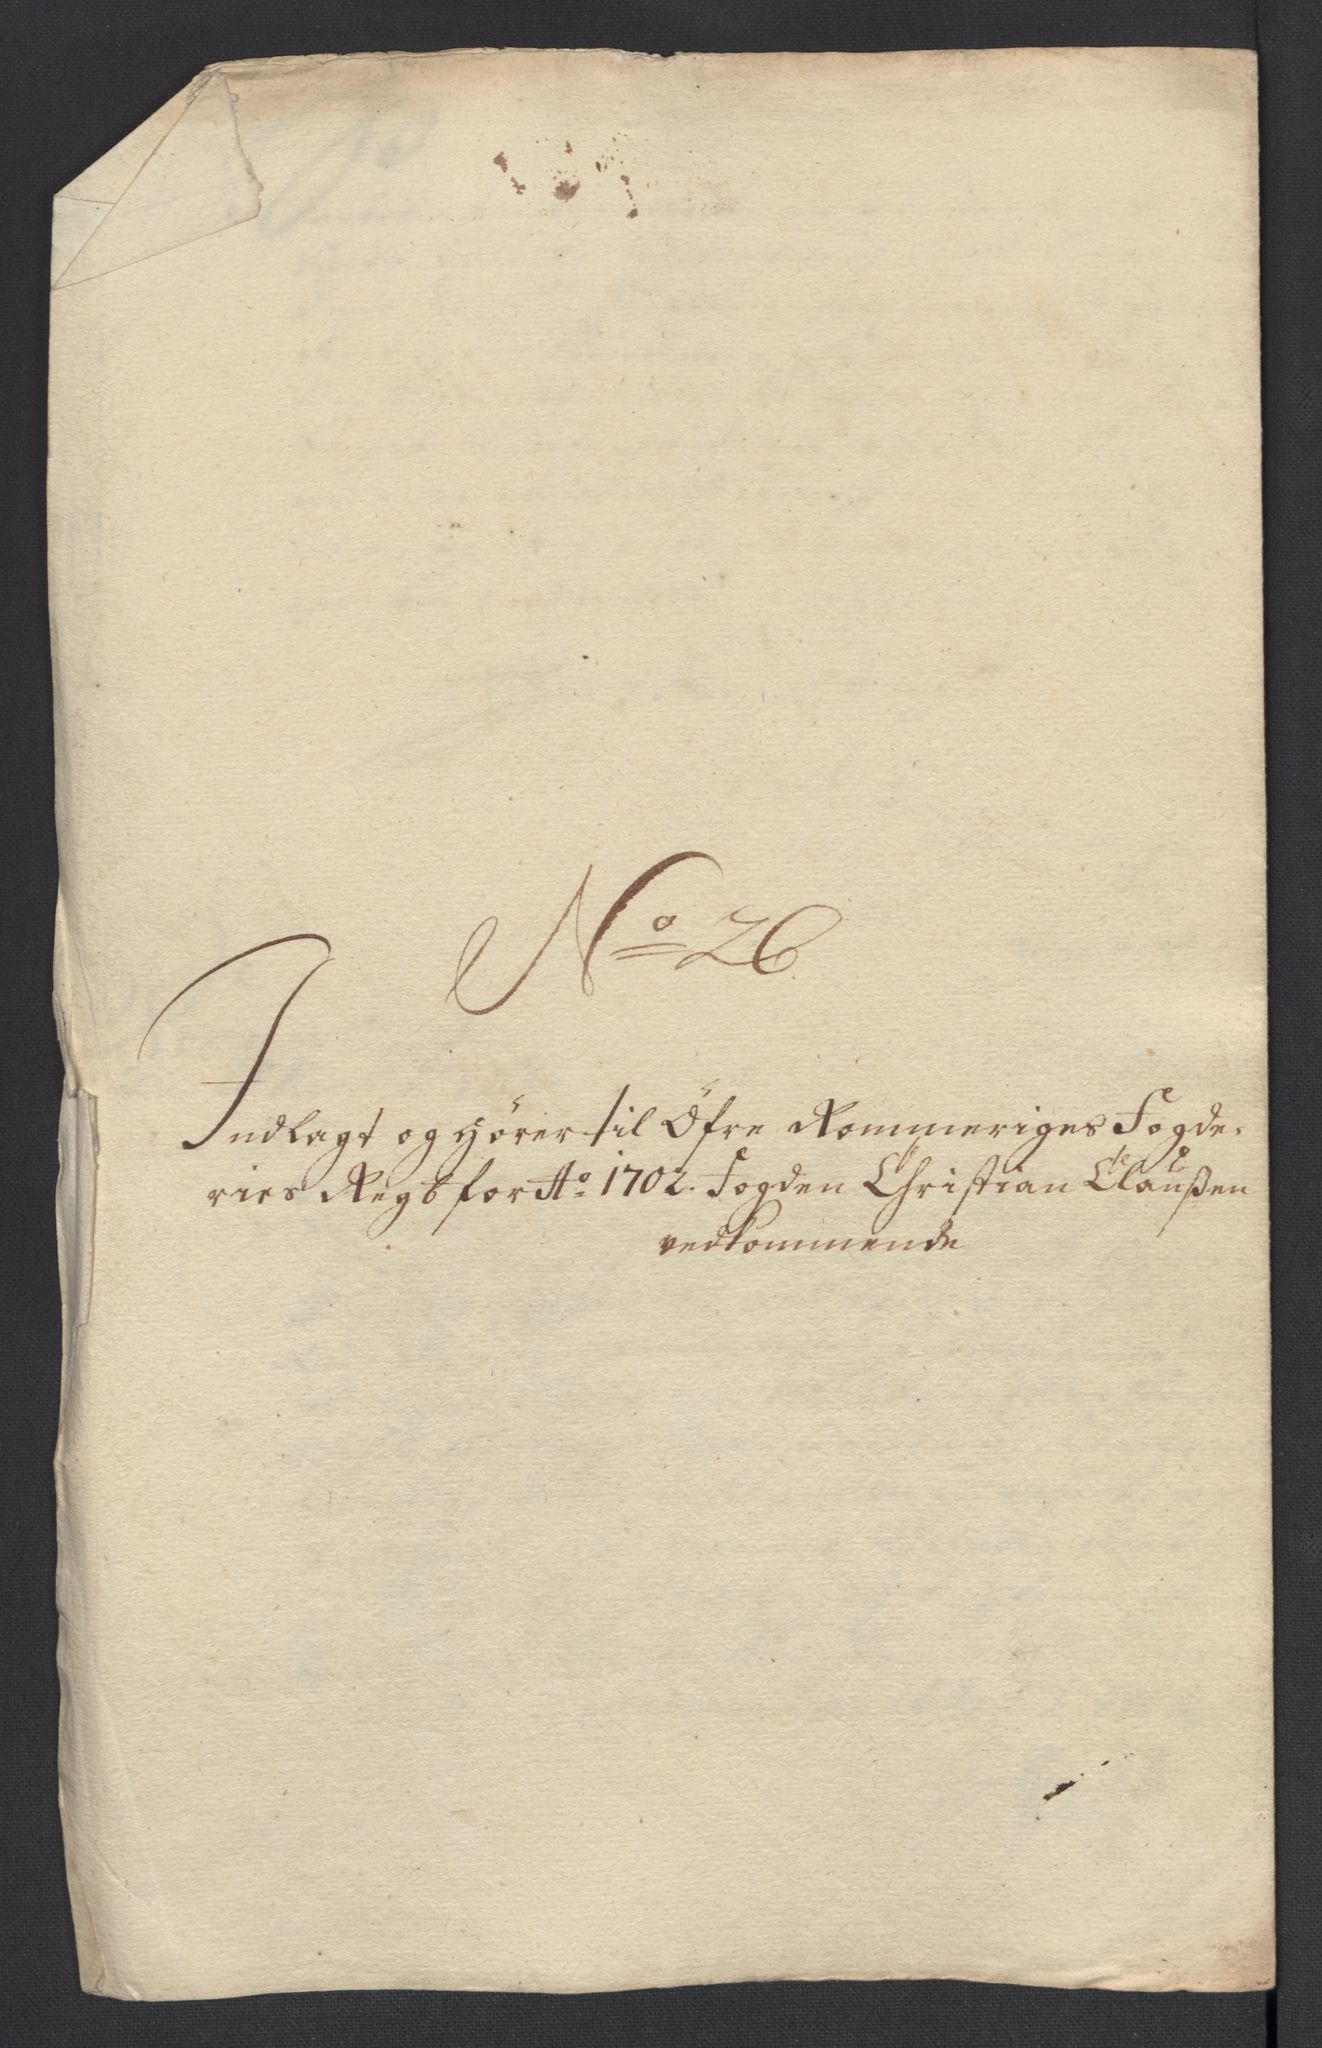 No 26
Indlagt og hörer til Öfre Rommeriges Fogde-
ries Regsb for Ao 1702. Fogden Christian Claußen
vedkommende